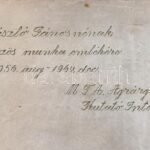 László Jánosnénak
közös munka emlékére
1954. aug - 1969. dec.
M.T.A. Agrárg
Kutató Inté